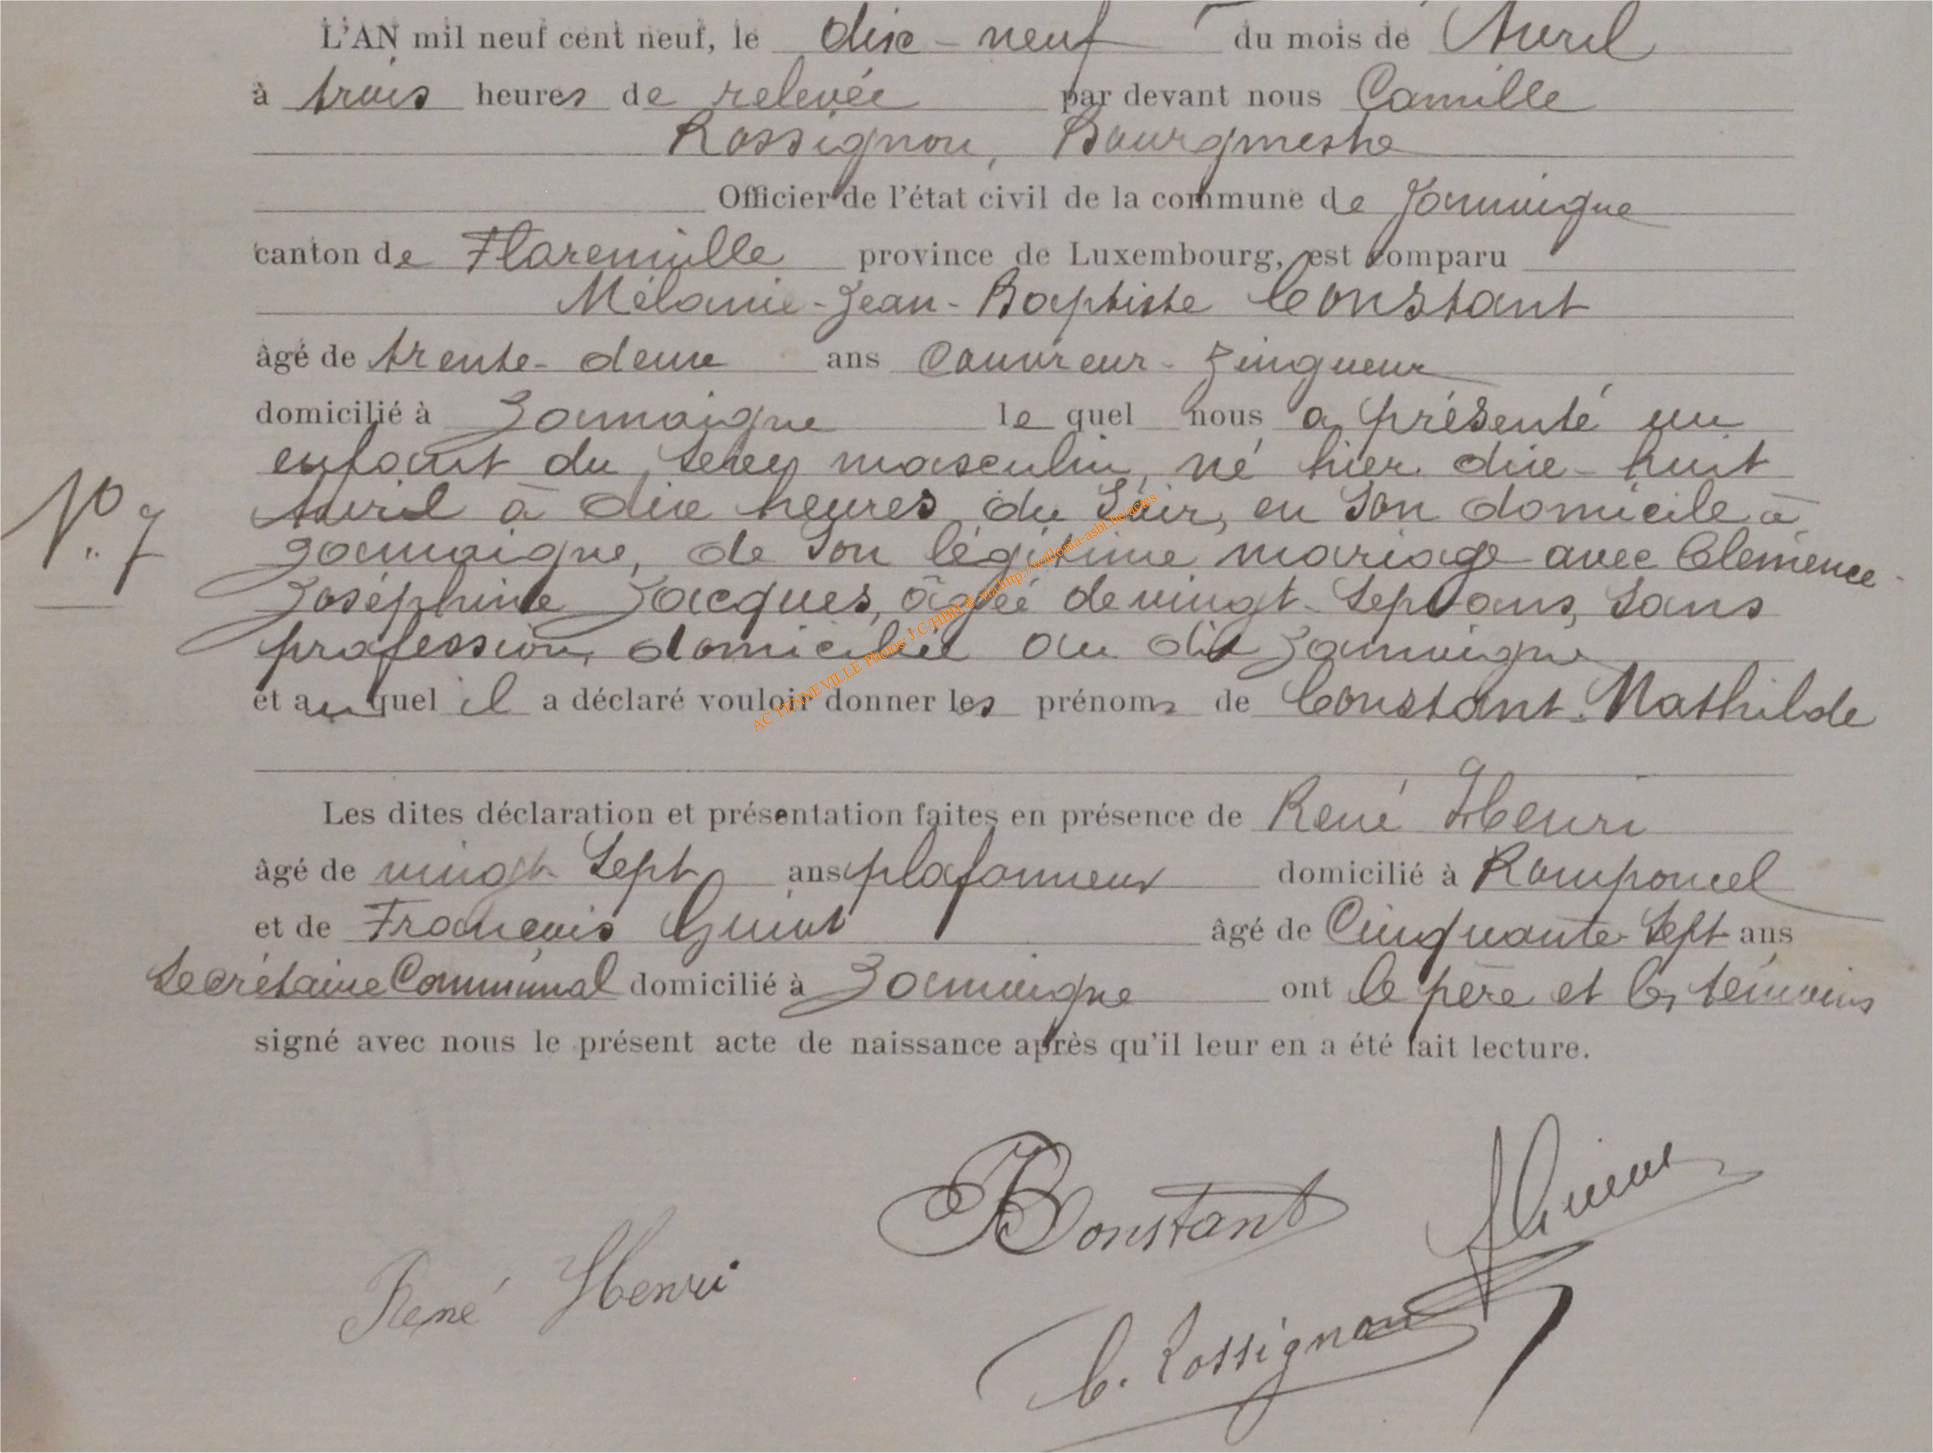 L'AN mil neuf cent neuf, le dix-neuf du mois de Avril
à trois heures de relevée par devant nous Camille
Rossignon, Bourgmestre
Officier de l'état civil de la commune de
canton de province de Luxembourg, est comparu
Mélanie-Jean-Baptiste Constant
âgé de trente-deux ans Couvreur-Zingueur
domicilié à le quel nous a présenté un
enfant du sexe masculin, né hier dix-huit
Avril à dix heures du Soir, en Son domicile à
N° 7
de Son légitime mariage avec Clémence
Joséphine Jacques, âgée de vingt-Sept ans, Sans
profession, domiciliée au dit
et au quel il a déclaré vouloir donner les prénoms de Constant. Mathilde
Les dites déclaration et présentation faites en présence de René Henri
âgé de vingt Sept ans plafonneur domicilié à
et de François âgé de Cinquante-Sept ans
Secrétaire Communal domicilié à ont le père et les témoins
signé avec nous le présent acte de naissance après qu'il leur en a été fait lecture.
Constant
René Henri
C. Rossignon
AC TENNEVILLE Photos J.C.